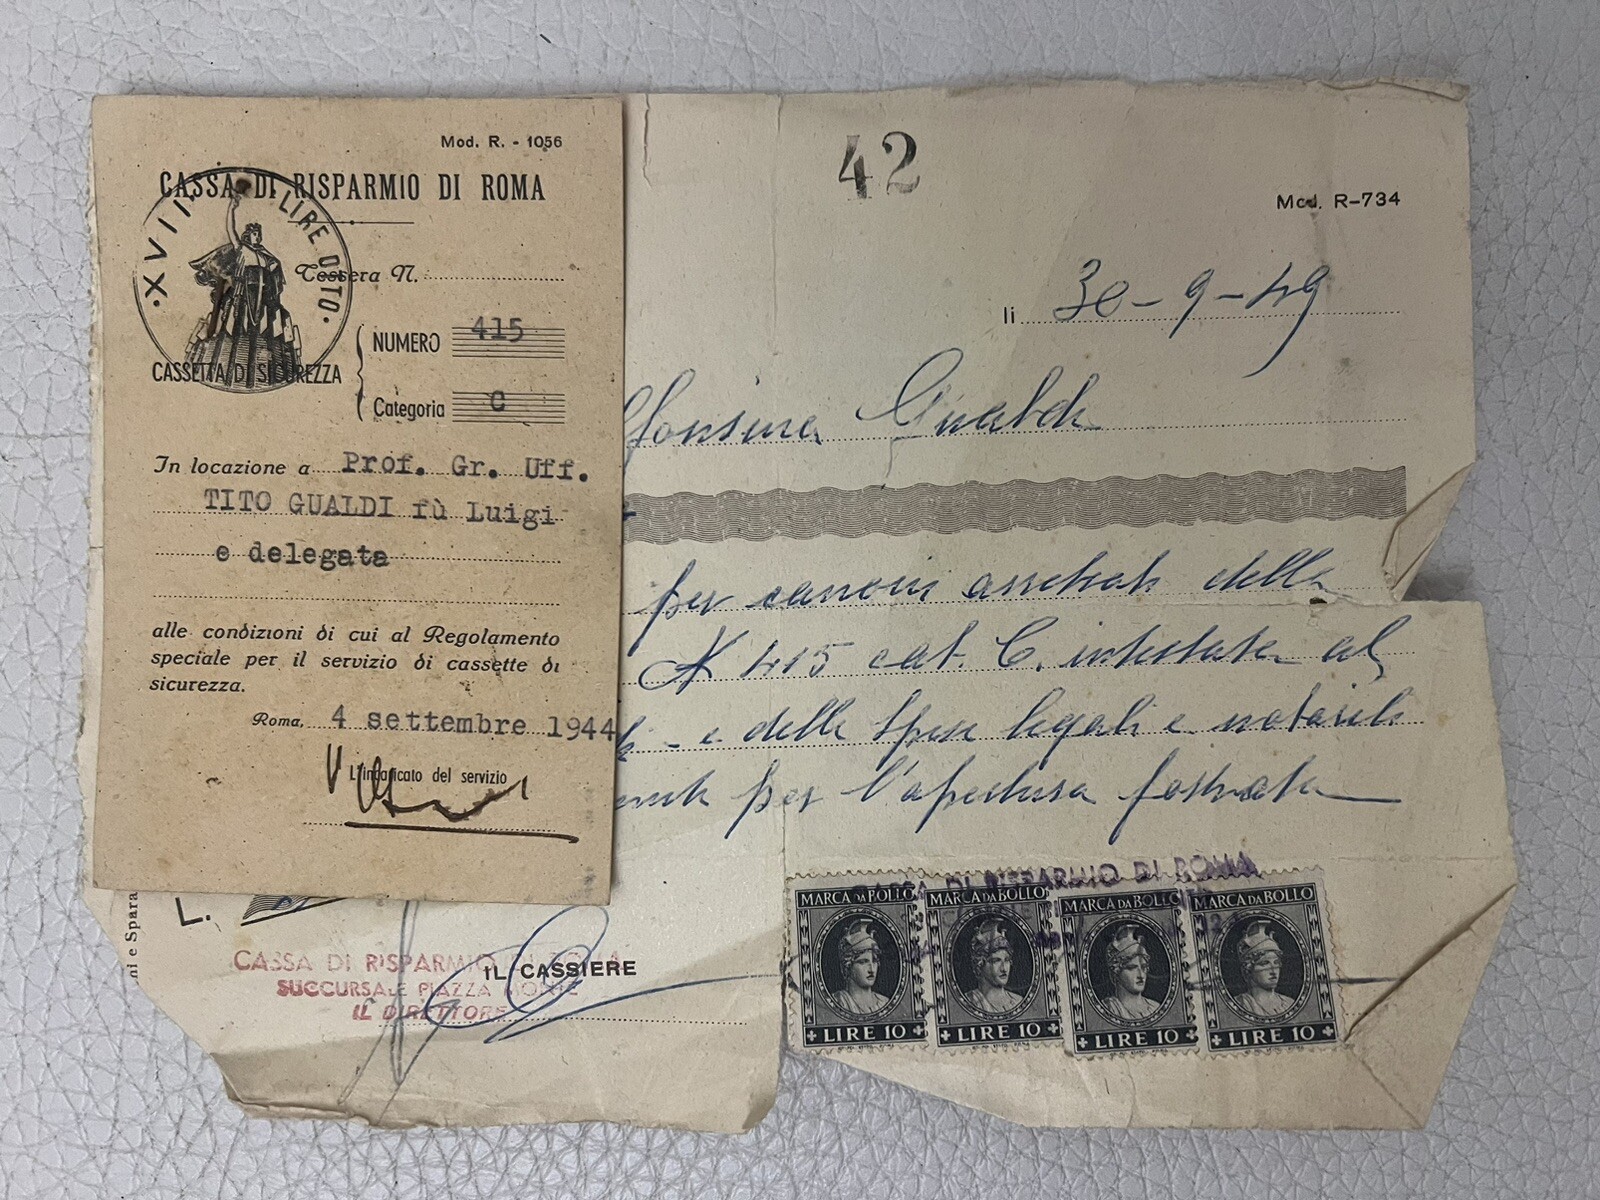 Mod. R. - 1056
CASSA DI RISPARMIO DI ROMA
· XVII · LIRE OTTO ·
Tessera N.
CASSETTA DI SICUREZZA
NUMERO 415
Categoria C
In locazione a Prof. Gr. Uff.
TITO GUALDI fù Luigi
e delegata
alle condizioni di cui al Regolamento
speciale per il servizio di cassette di
sicurezza.
Roma, 4 settembre 1944
L'incaricato del servizio
42
Mod. R-734
li 30-9-49
fonsina Gualdi
per canoni arretrati della
N 415 cat. C. intestata al
e delle spese legali e notarili
per l'apertura forzata
ni e Spara
L.
CASSA DI RISPARMIO DI ROMA
SUCCURSALE PIAZZA MONTE
IL DIRETTORE
IL CASSIERE
CASSA DI RISPARMIO DI ROMA
MARCA DA BOLLO
LIRE 10
MARCA DA BOLLO
LIRE 10
MARCA DA BOLLO
LIRE 10
MARCA DA BOLLO
LIRE 10